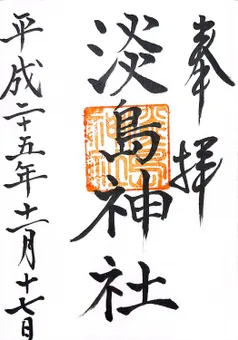 奉拝
淡島神社
平成二十五年十一月十七日